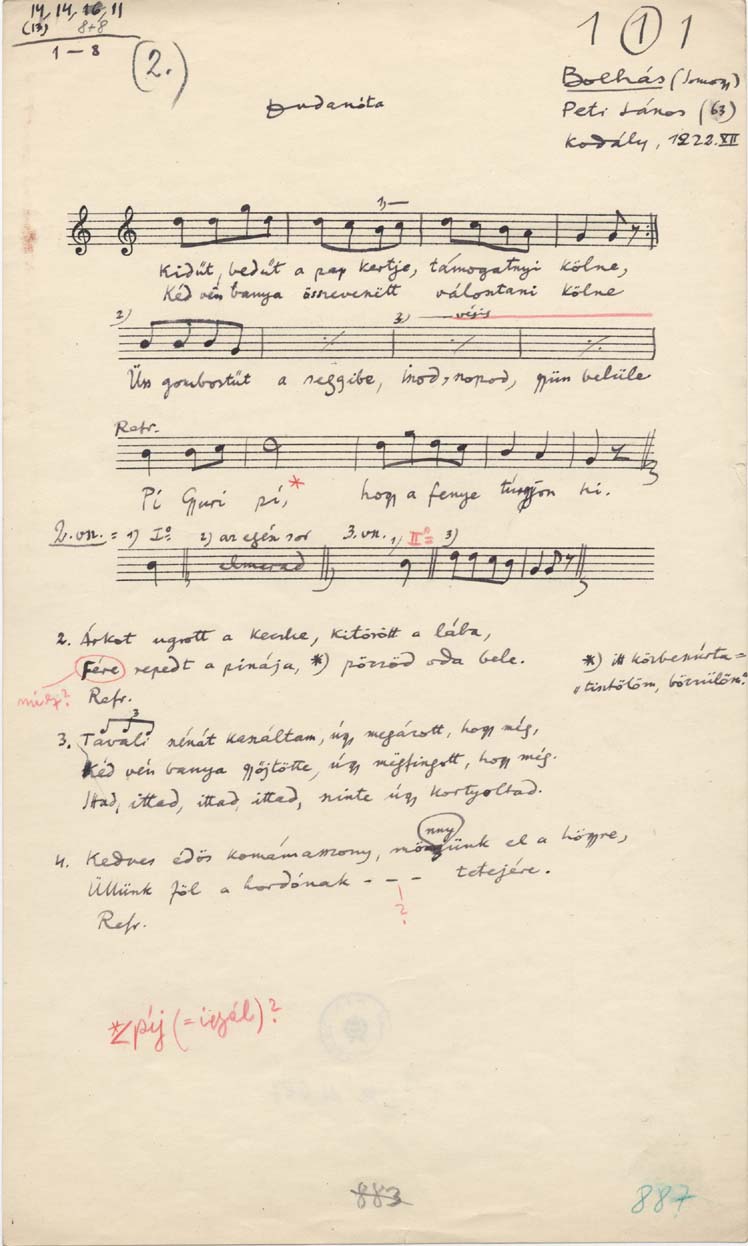 14, 14, 16, 11
(13) 8+8
1 — 8
(2.)
1 1 1
Dudanóta
Bolhás (Somogy)
Peti János (63)
Kodály, 1922. XII
1,—
Kidűt, bedűt a pap kertje, támogatnyi kölne,
Kéd vén banya összevenitt válontani kölne
2) 3) végig
Üss gombostűt a seggibe, inod, nopod, gyün belüle
Refr.
Pí Gyuri pí,* hogy a fenye túrgyon ki.
2. vn. = 1) Iº= 2) az egén sor 3. vn. 1) IIº= 3)
elmarad
2. Árkot ugrott a kecske, kitörött a lába,
Fére repedt a pinája, *) pörzöd oda bele.
*) itt közbenúrta =
„tisztölöm, böcsülöm."
Refr.
3
3. Tavali nénát kanáltam, úgy megárott, hogy még,
Kéd vén banya gyöjtötte, úgy mëgfingott, hogy még.
Ittad, ittad, ittad, ittad, szinte úgy kortyoltad.
nny
4. Kedves édös komámasszony, mönnyünk el a högyre,
Üllünk föl a hordónak - - - tetejére.
?
Refr.
* píj (= igyál)?
883
887